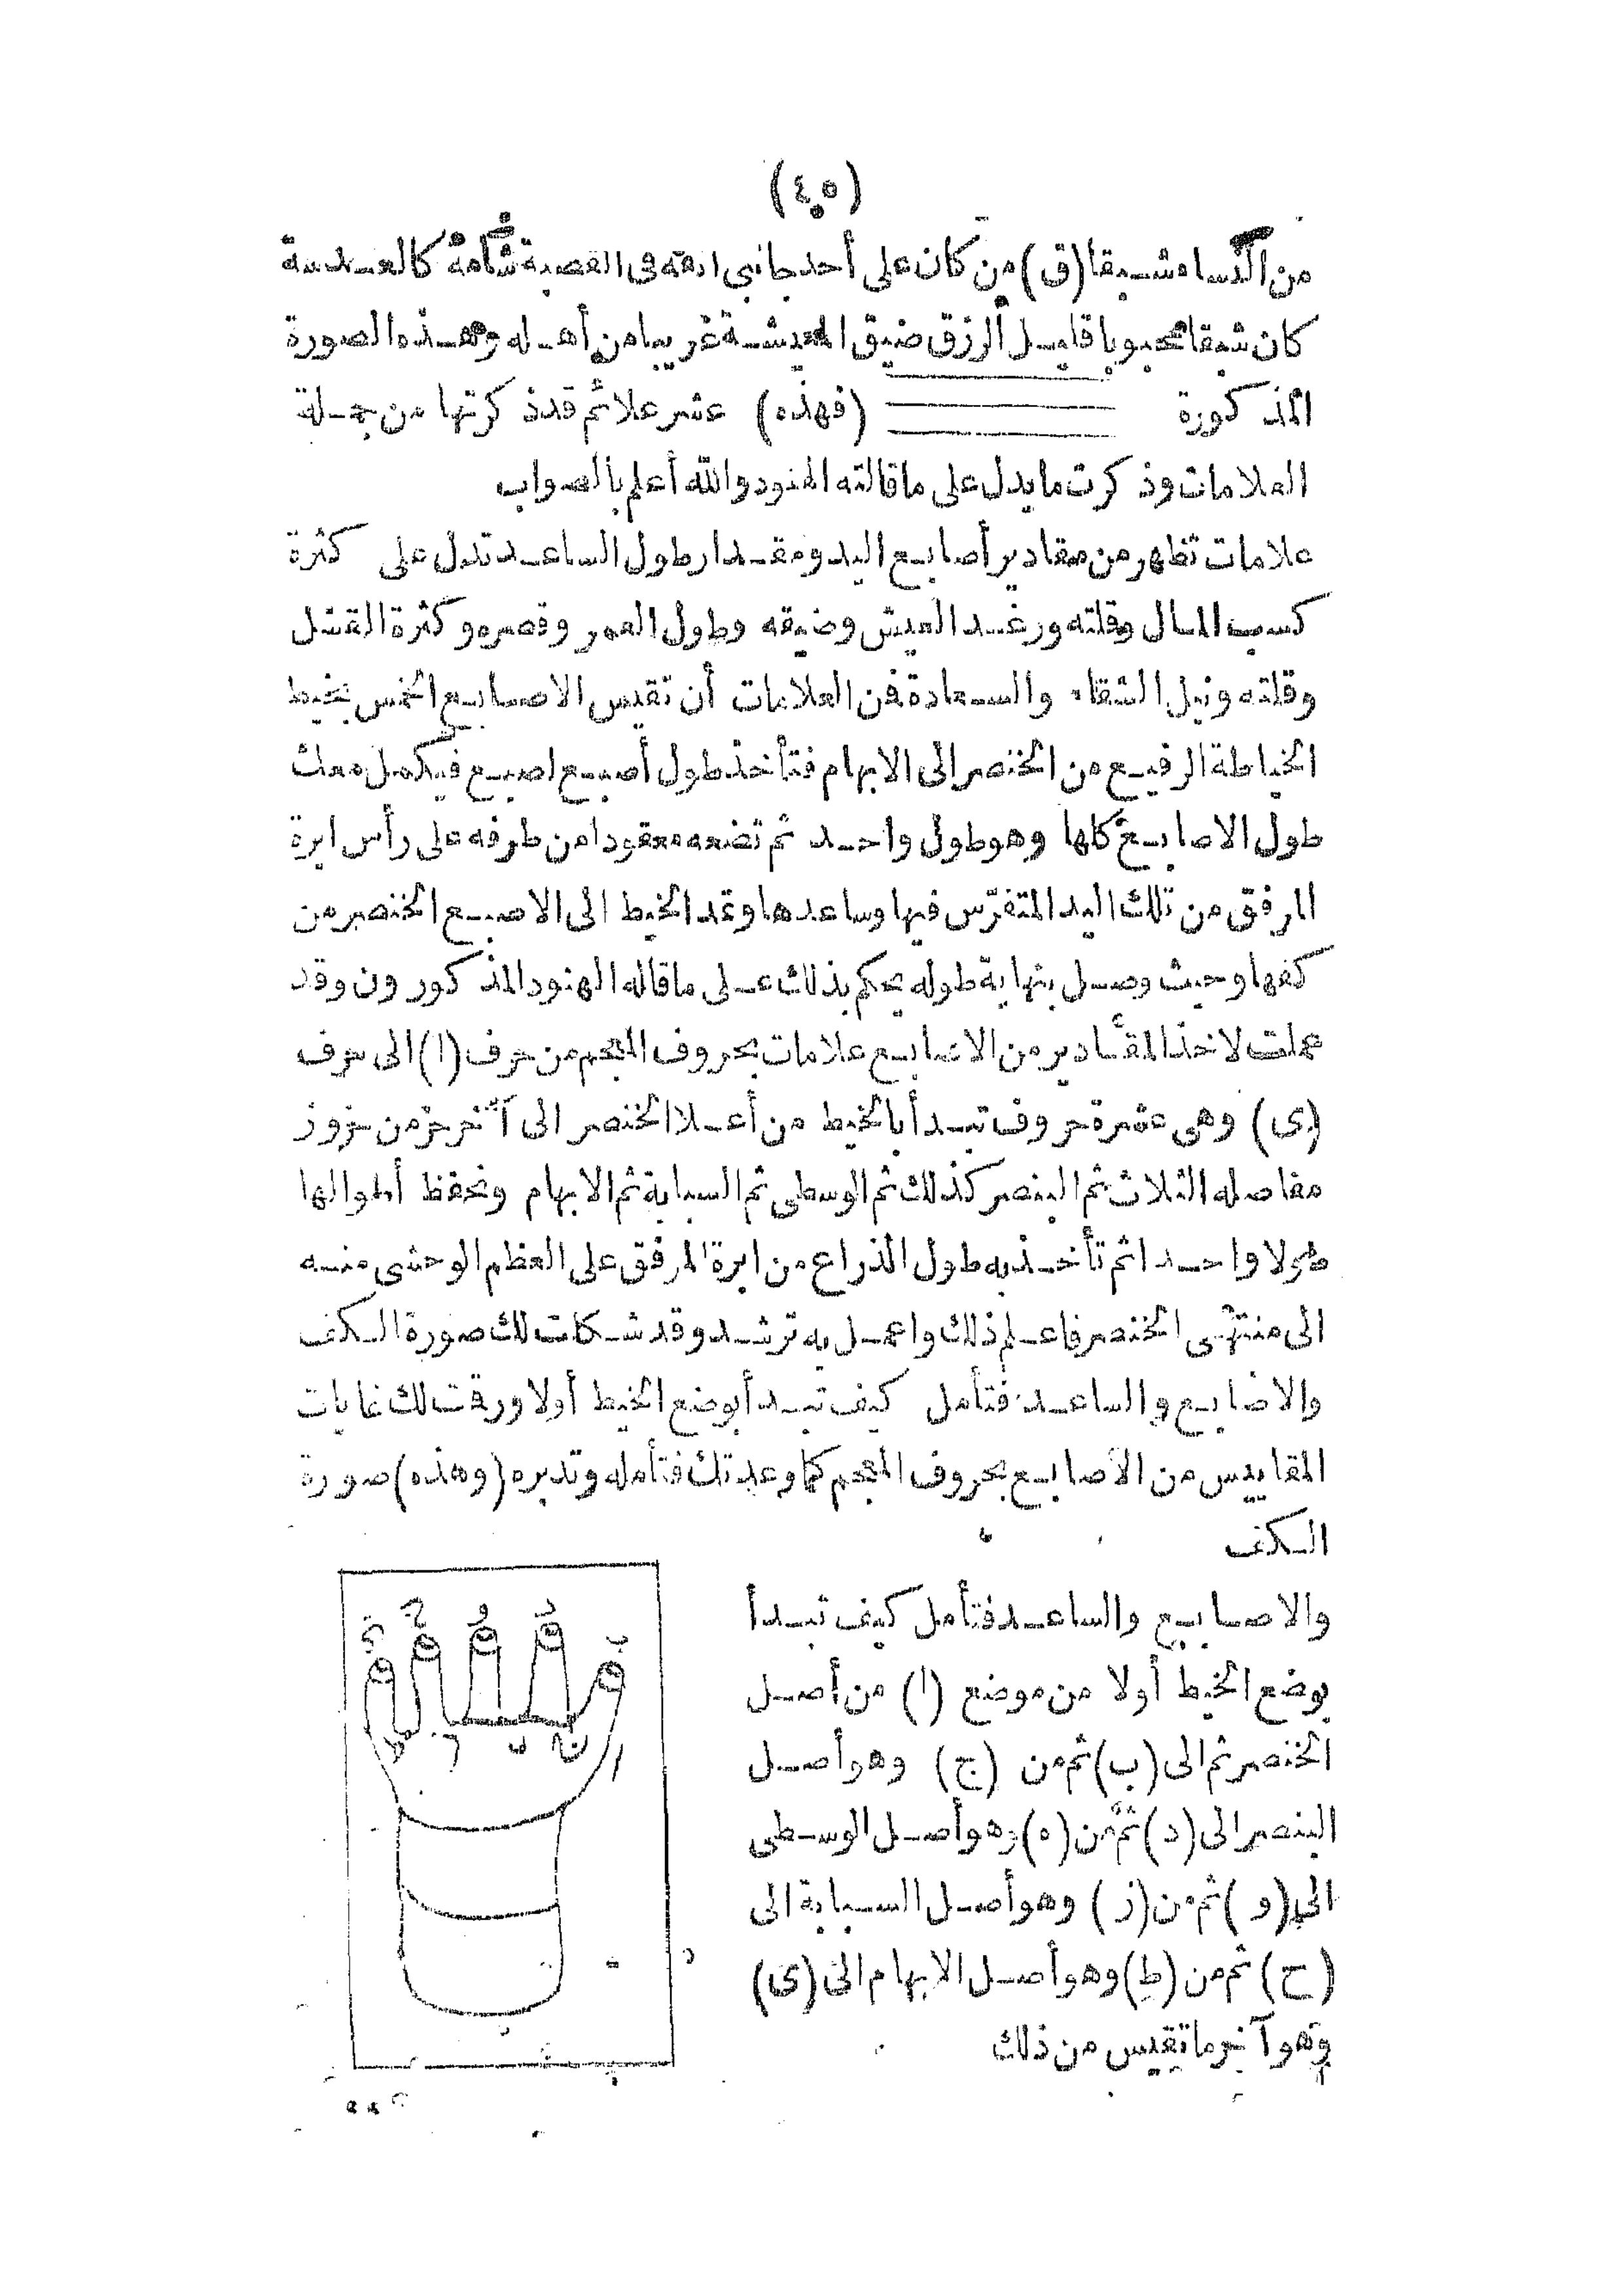 (٤٥)
من النساء شبقا (ق) من كان على أحد جانبى انفه فى القصبة شامة كالعدسة
كان شبقا محبوبا قليل الرزق ضيق المعيشة غريبا من أهله وهذه الصورة
المذكورة (فهذه) عشر علائم قد ذكرتها من جملة
العلامات وذكرت ما يدل على ما قالته الهنود والله أعلم بالصواب
علامات تظهر من مقادير أصابع اليد ومقدار طول الساعد تدل على كثرة
كسب المال وقلته ورغد العيش وضيقه وطول العمر وقصره وكثرة القتل
وقلته ونيل الشقاء والسعادة فن العلامات أن تقيس الاصابع الخمس بخيط
الخياطة الرفيع من الخنصر الى الابهام فتأخذ طول أصبع اصبع فيكمل معك
طول الاصابع كلها وهو طول واحد ثم تضعه معقودا من طرفه على رأس ابرة
المرفق من تلك اليد المتفرّس فيها وساعدها وتمد الخيط الى الاصبع الخنصر من
كفها وحيث وصل بنهاية طوله يحكم بذلك على ما قاله الهنود المذكورون وقد
عملت لاخذ المقادير من الاصابع علامات بحروف المعجم من حرف (ا) الى حرف
(ى) وهى عشرة حروف تبدأ بالخيط من أعلا الخنصر الى آخر حز من حزوز
مفاصله الثلاث ثم البنصر كذلك ثم الوسطى ثم السبابة ثم الابهام وتحفظ أطوالها
طولا واحدا ثم تأخذ به طول الذراع من ابرة المرفق على العظم الوحشى منه
الى منتهى الخنصر فاعلم ذلك واعمل به ترشد وقد شكلت لك صورة الكف
والاصابع والساعد فتأمل كيف تبدأ بوضع الخيط أولا ورقمت لك غايات
المقاييس من الاصابع بحروف المعجم كما وعدتك فتأمله وتدبره (وهذه) صورة
الكف
والاصابع والساعد فتأمل كيف تبدأ
بوضع الخيط أولا من موضع (ا) من أصل
الخنصر ثم الى (ب) ثم من (ج) وهو أصل
البنصر الى (د) ثم من (ه) وهو أصل الوسطى
الى (و) ثم من (ز) وهو أصل السبابة الى
(ح) ثم من (ط) وهو أصل الابهام الى (ى)
وهو آخر ما تقيس من ذلك